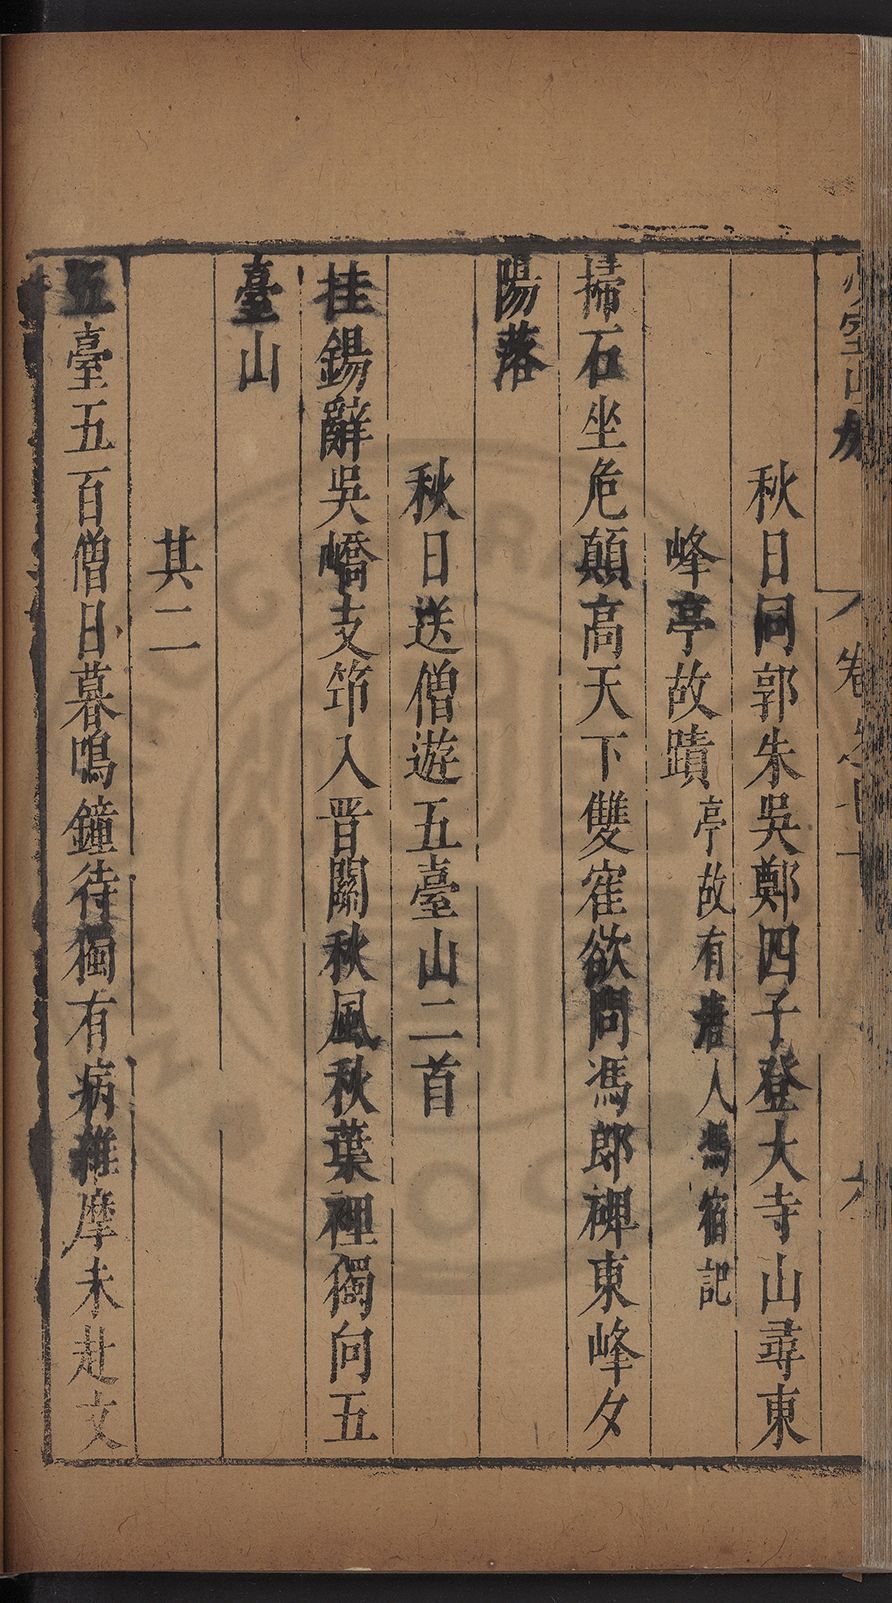 少室山房
卷之
秋日同郭朱吳鄭四子登大寺山尋東
峰亭故蹟亭故有唐人馮宿記
掃石坐危顛高天下雙寉欲問馮郎碑東峰夕
陽落
秋日送僧遊五臺山二首
挂錫辭吳嶠支筇入晋關秋風秋葉裡獨向五
臺山
其二
五臺五百僧日暮鳴鐘待獨有病維摩未赴文